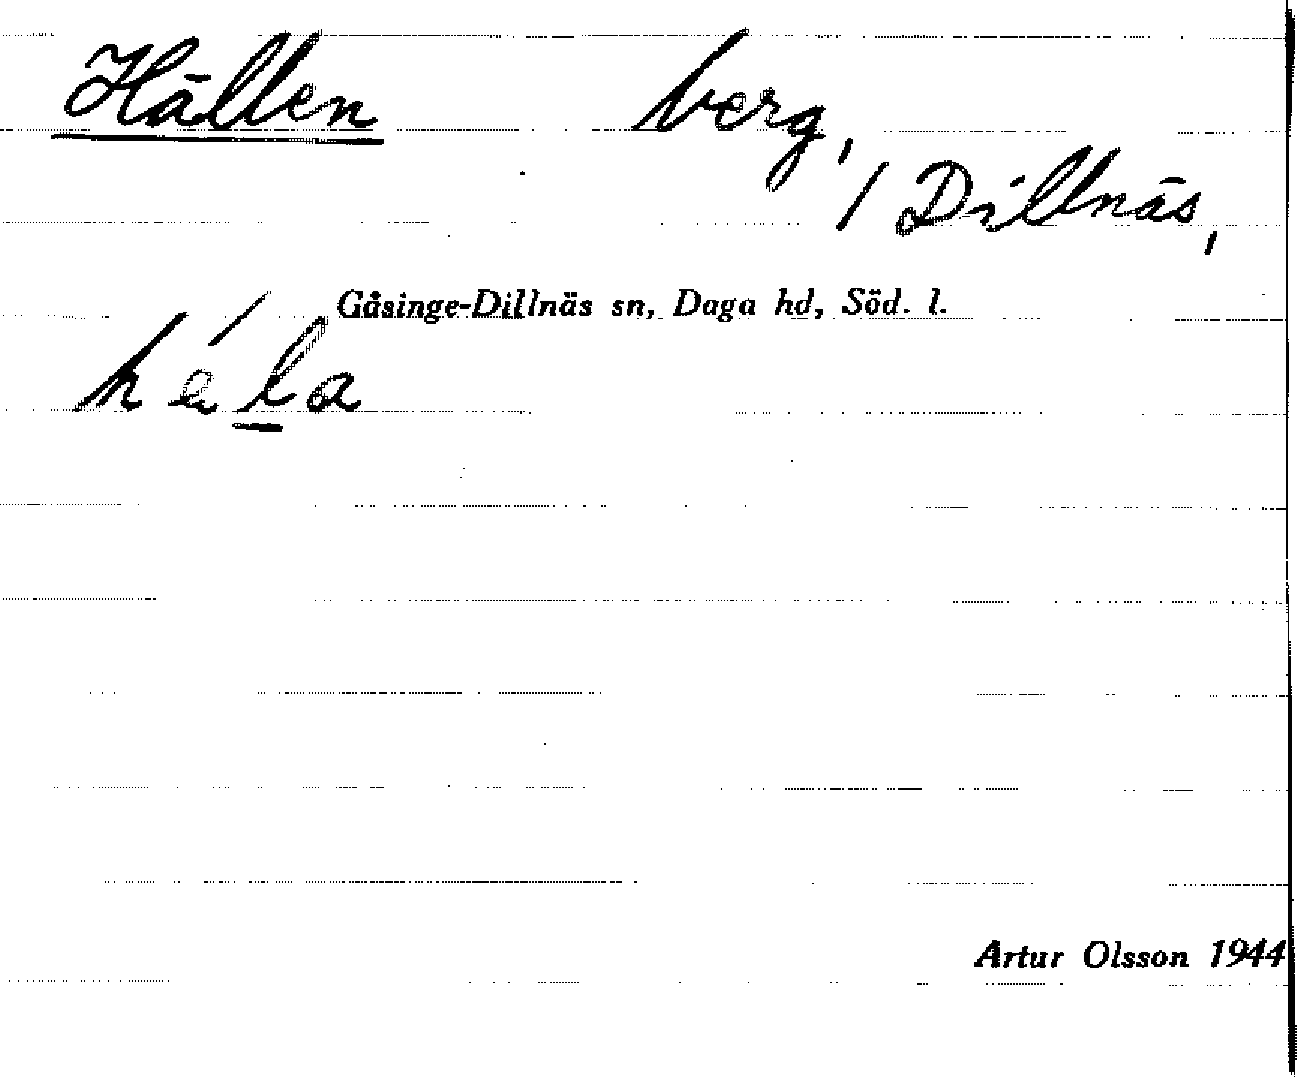 Hällen berg,
/ Dillnäs,
Gåsinge-Dillnäs sn, Daga hd, Söd. l.
hé̱la
Artur Olsson 1944